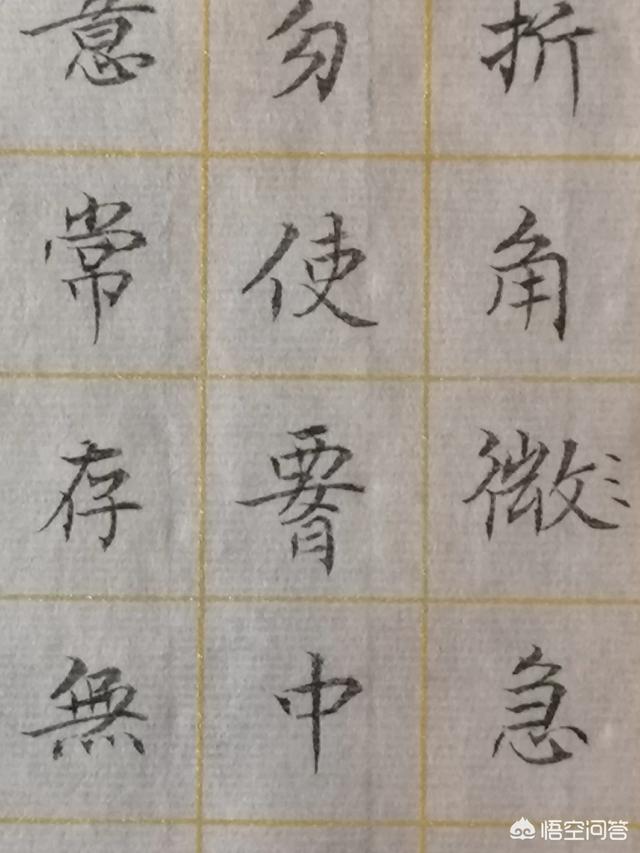 折角微急
勿使腰中
意常存無
悟空问答